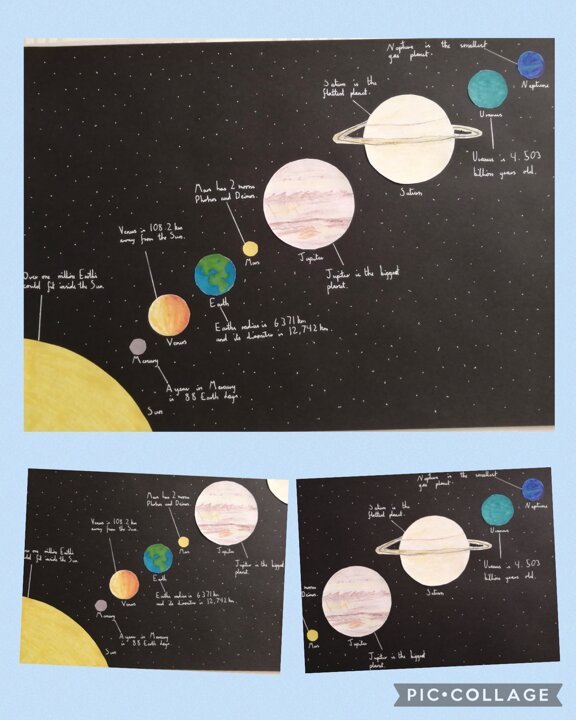 Neptune is the smallest
gas planet.
Neptune
Saturn is the
flattest planet.
Uranus
Uranus is 4.503
billion years old.
Saturn
Mars has 2 moons
Phobos and Deimos.
Venus is 108.2 km
away from the Sun.
Mars
Jupiter
Jupiter is the biggest
planet.
Over one million Earths
could fit inside the Sun.
Earth
Earths radius is 6371 km
and its diameter is 12,742 km.
Venus
Mercury
A year in Mercury
is 88 Earth days.
Sun
Mars has 2 moons
Phobos and Deimos.
Venus is 108.2 km
away from the Sun.
Mars
Jupiter
Jupiter is the biggest
planet.
one million Earths
fit inside the Sun.
Earth
Earths radius is 6371 km
and its diameter is 12,742 km.
Venus
Mercury
A year in Mercury
is 88 Earth days.
Sun
Neptune is the smallest
gas planet.
Neptune
Saturn is the
flattest planet.
Uranus
Uranus is 4.503
billion years old.
Saturn
moons
Deimos.
Mars
Jupiter
Jupiter is the biggest
planet.
PIC•COLLAGE